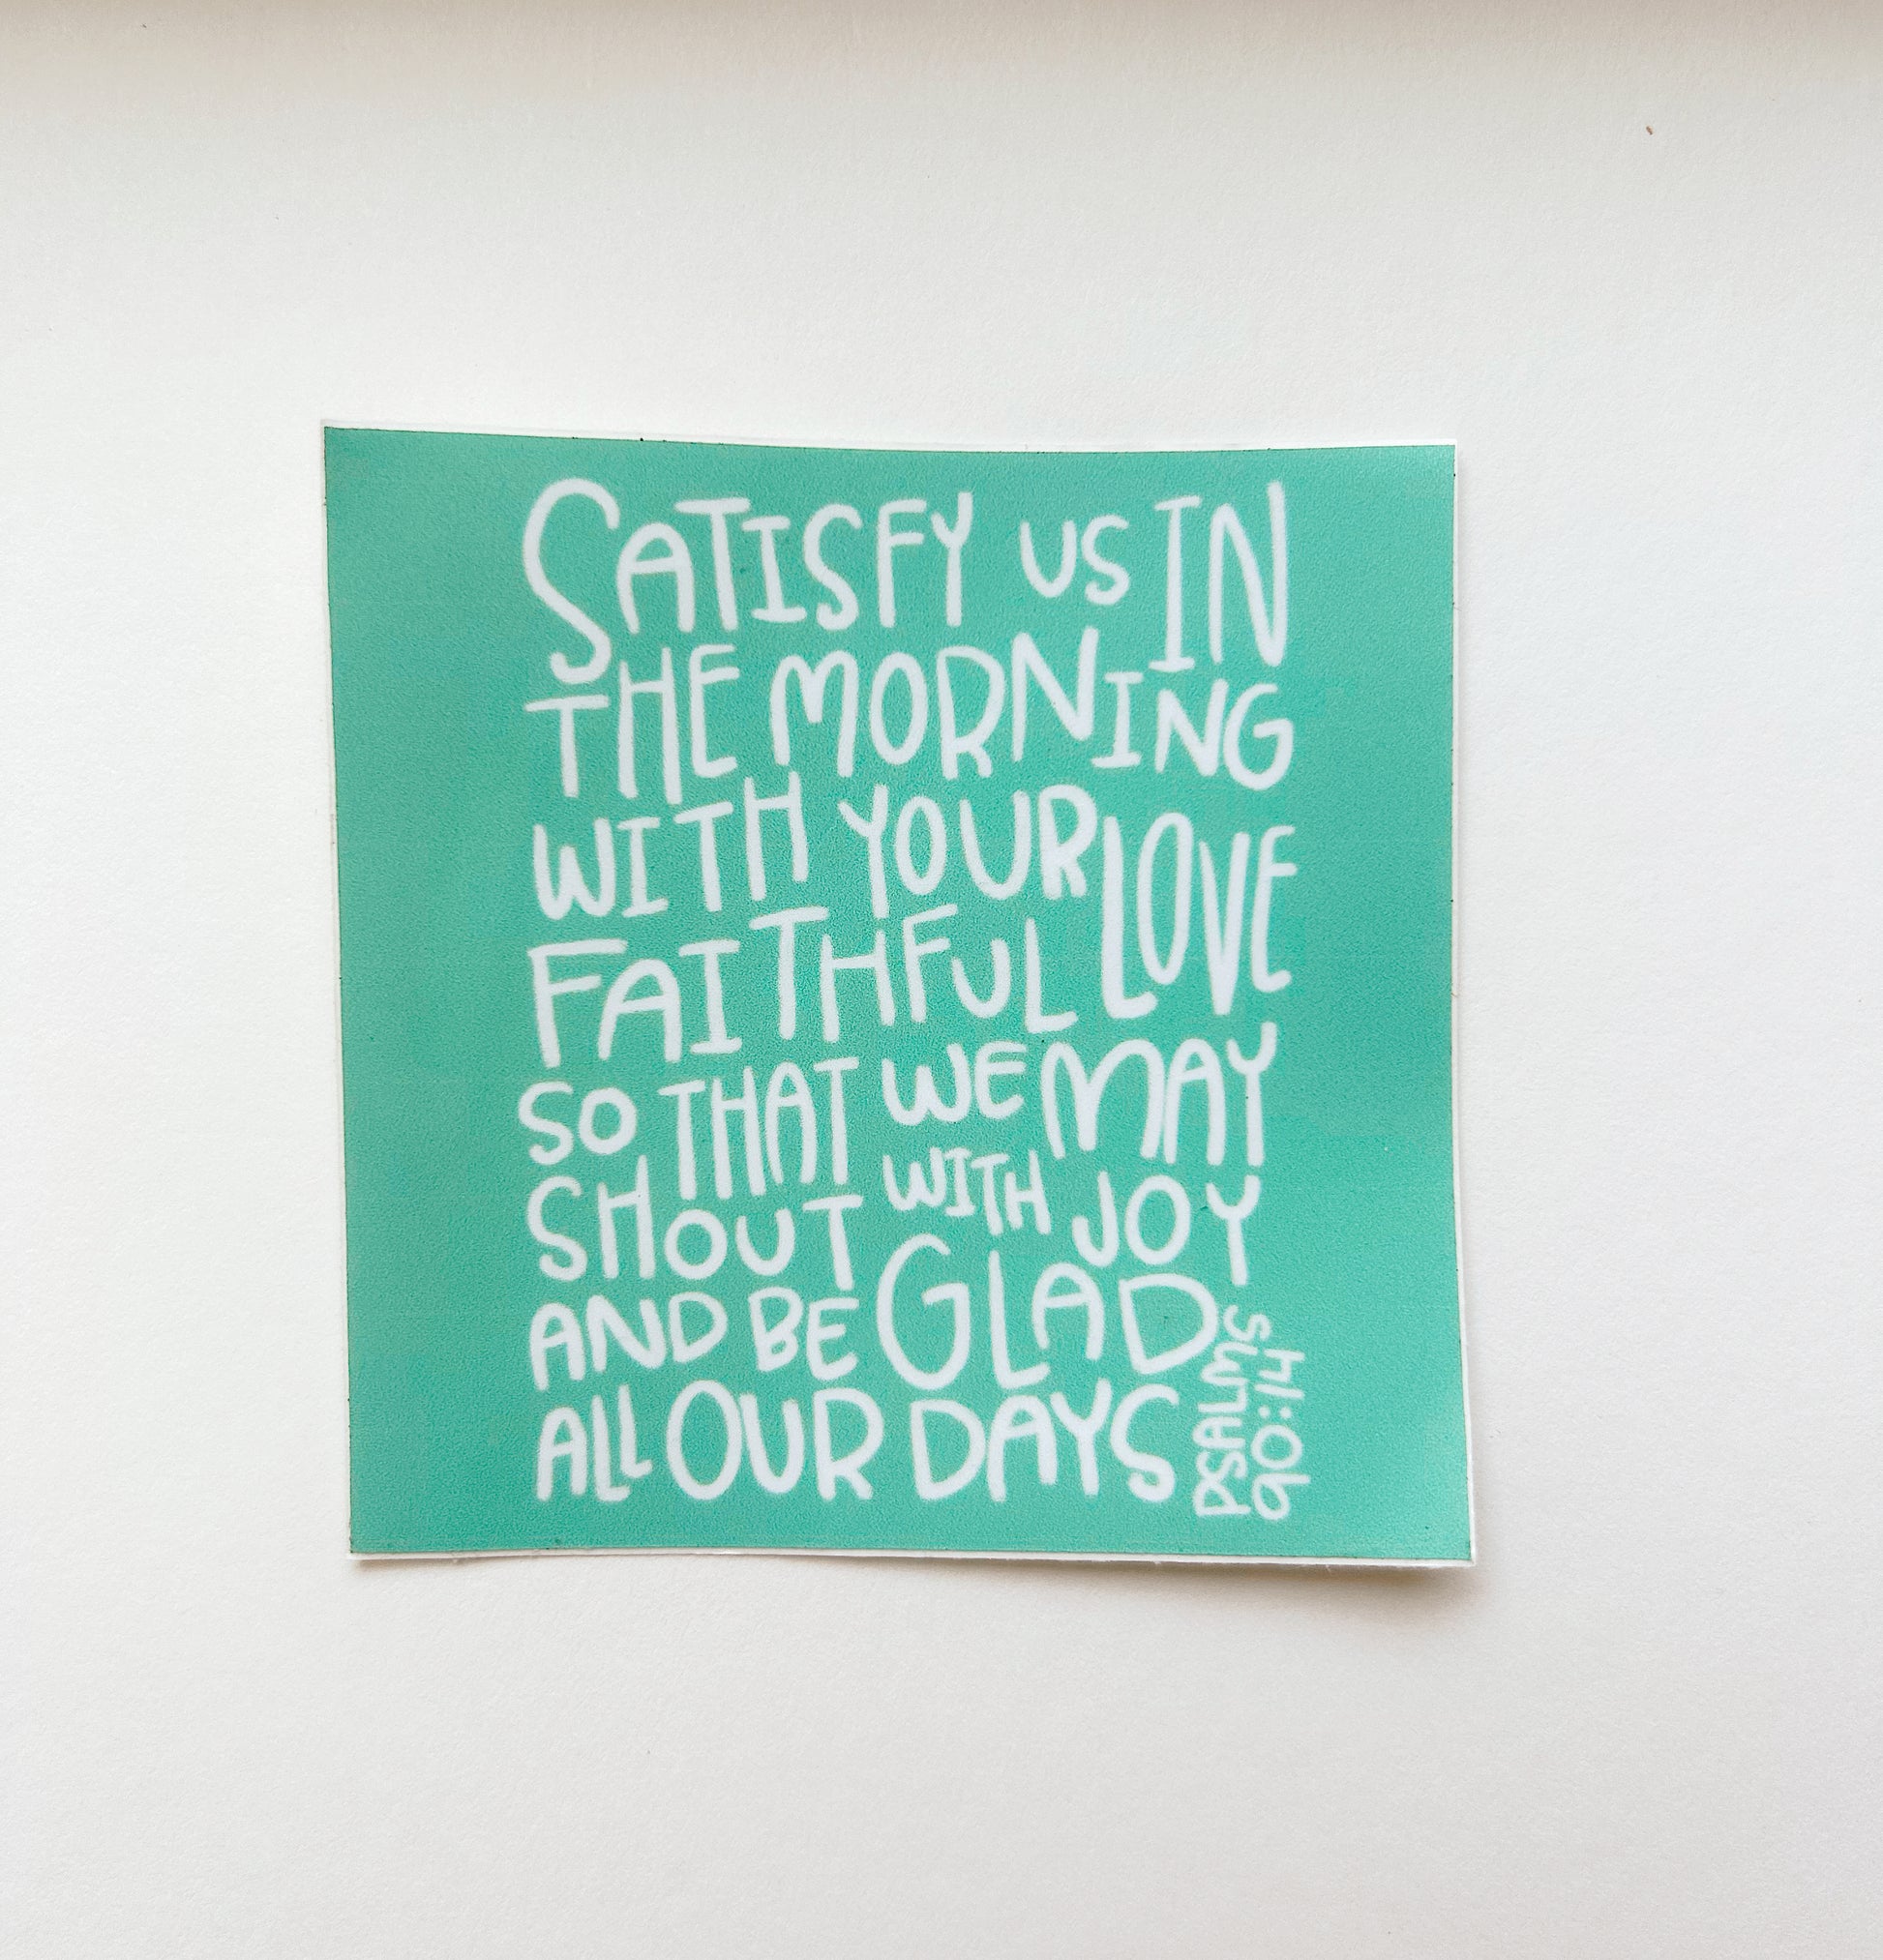 SATISFY US IN
THE MORNING
WITH YOUR LOVE
FAITHFUL
SO THAT WE MAY
SHOUT WITH JOY
AND BE GLAD
ALL OUR DAYS
PSALMS
90:14